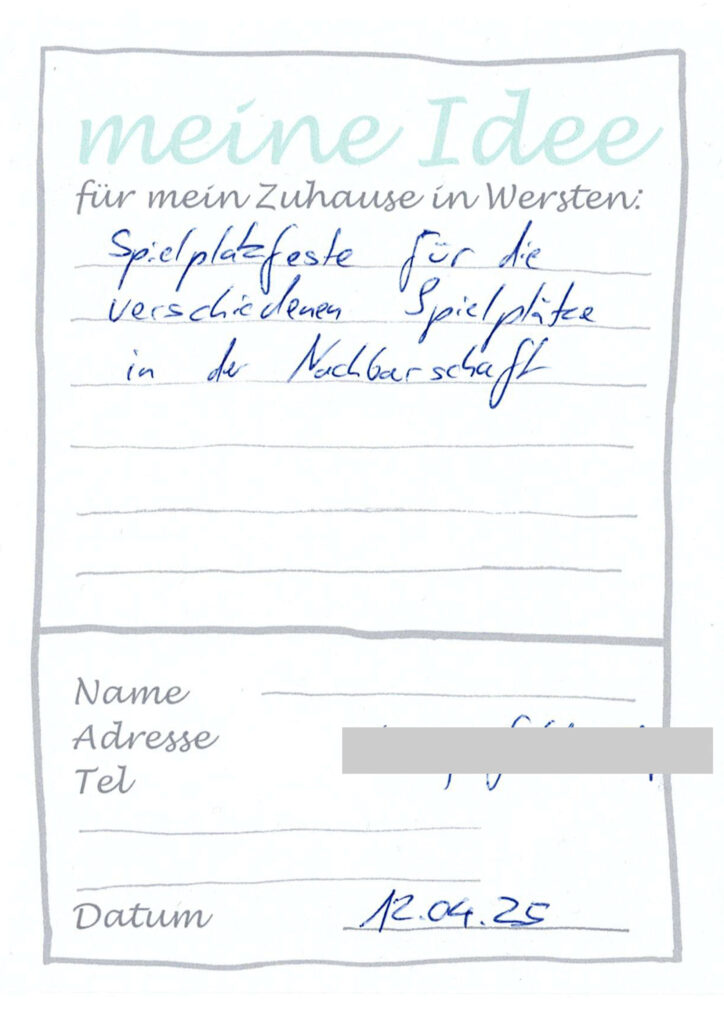 meine Idee
für mein Zuhause in Wersten:
Spielplatzfeste für die
verschiedenen Spielplätze
in der Nachbarschaft
Name
Adresse
Tel
Datum 12.04.25